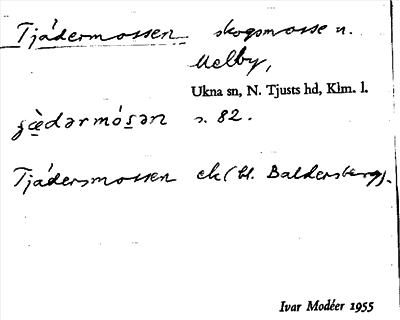 Tjádermossen skogsmosse n.
Melby,
Ukna sn, N. Tjusts hd, Klm. l.
s. 82.
Tjádersmossen ek (bl. Baldersberg).
Ivar Modéer 1955